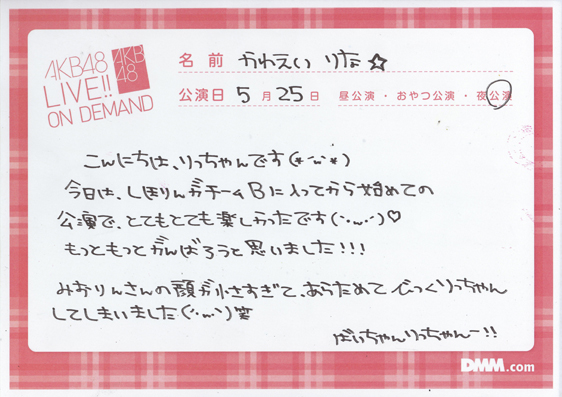 AKB48
LIVE!!
ON DEMAND
AKB
48
名前 かわえい りな☆
公演日 5月25日 昼公演・おやつ公演・夜公演
こんにちは、りっちゃんです(*´ω`*)
今日は、しほりんがチームBに入ってから始めての
公演で、とてもとても楽しかったです(´・ω・`)♡
もっともっとがんばろうと思いました!!!
みおりんさんの顔が小さすぎて、あらためてびっくりっちゃん
してしまいました(´・ω・`)笑
ばいちゃんりっちゃんー!!
DMM.com